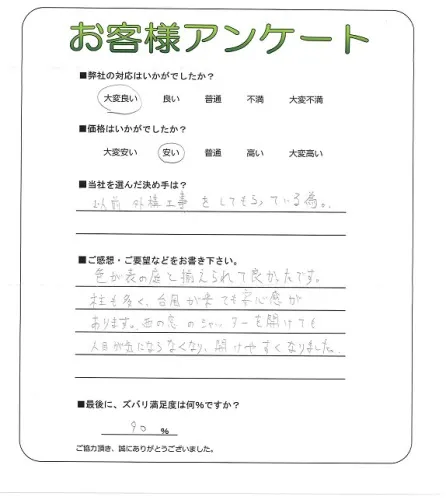 お客様アンケート
■弊社の対応はいかがでしたか？
大変良い 良い 普通 不満 大変不満
■価格はいかがでしたか？
大変安い 安い 普通 高い 大変高い
■当社を選んだ決め手は？
以前外構工事をしてもらっている為。
■ご感想・ご要望などをお書き下さい。
色が表の庭と揃えられて良かったです。
柱も多く、台風が来ても安心感が
あります。西の窓のシャッターを開けても
人目が気にならなくなり、開けやすくなりました。
■最後に、ズバリ満足度は何％ですか？
90 ％
ご協力頂き、誠にありがとうございました。